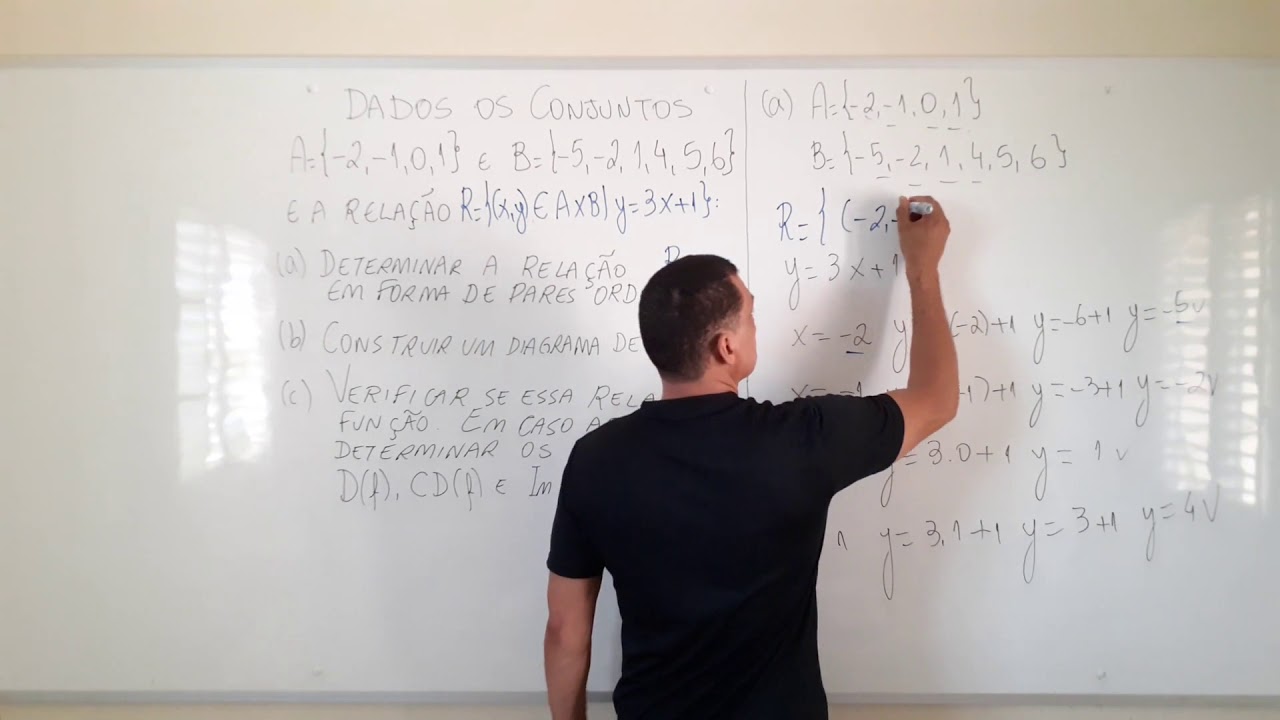 DADOS OS CONJUNTOS
A={-2,-1,0,1} E B={-5,-2,1,4,5,6}
E A RELAÇÃO R={(x,y) ∈ A×B| y=3x+1}:
(a) DETERMINAR A RELAÇÃO R
EM FORMA DE PARES ORD
(b) CONSTRUIR UM DIAGRAMA DE
(c) VERIFICAR SE ESSA RELA
FUNÇÃO. EM CASO A
DETERMINAR OS
D(f), CD(f) E Im
(a) A={-2,-1,0,1}
B={-5,-2,1,4,5,6}
R={(-2,-
y=3x+1
x=-2 y (-2)+1 y=-6+1 y=-5v
x=-1 -1)+1 y=-3+1 y=-2v
y=3.0+1 y=1v
1 y=3.1+1 y=3+1 y=4v